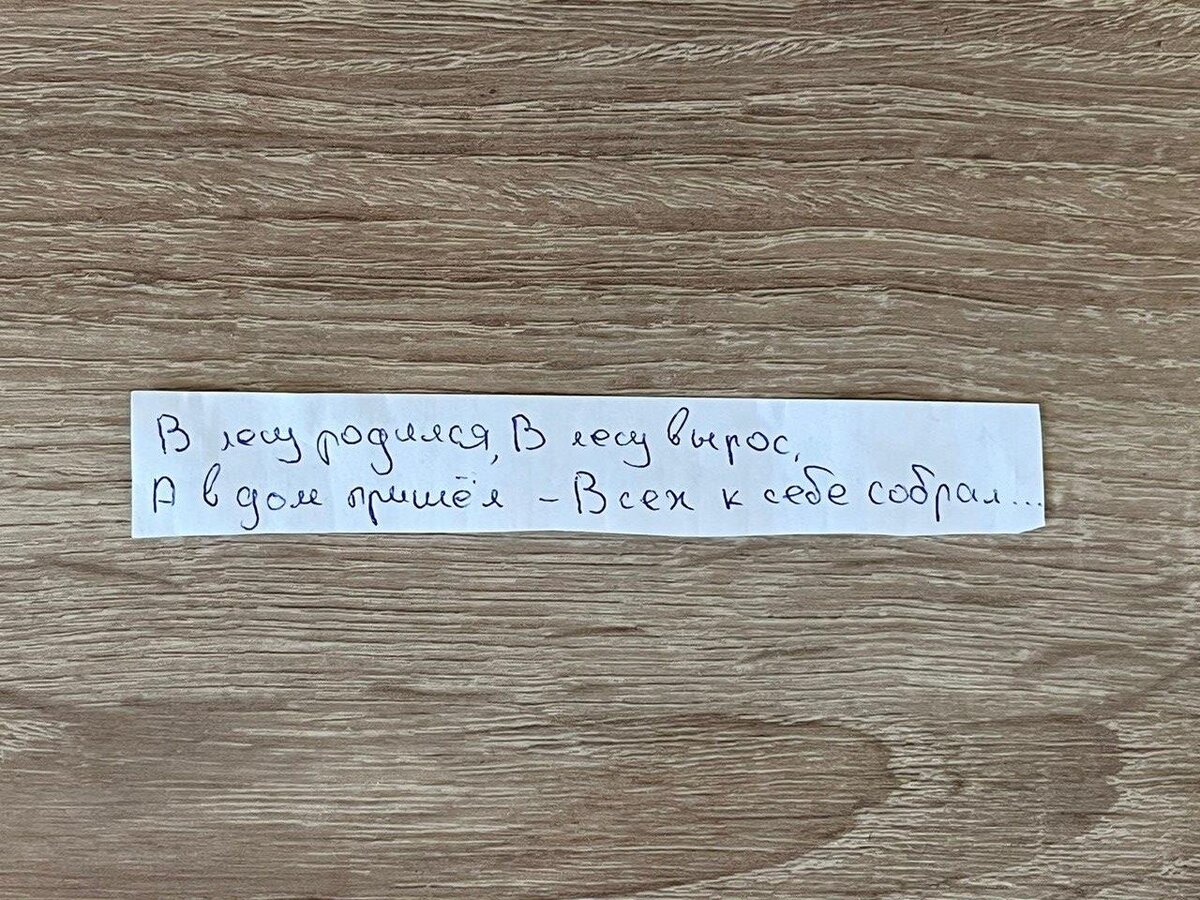 В лесу родился, В лесу вырос,
А в дом пришёл - Всех к себе собрал...